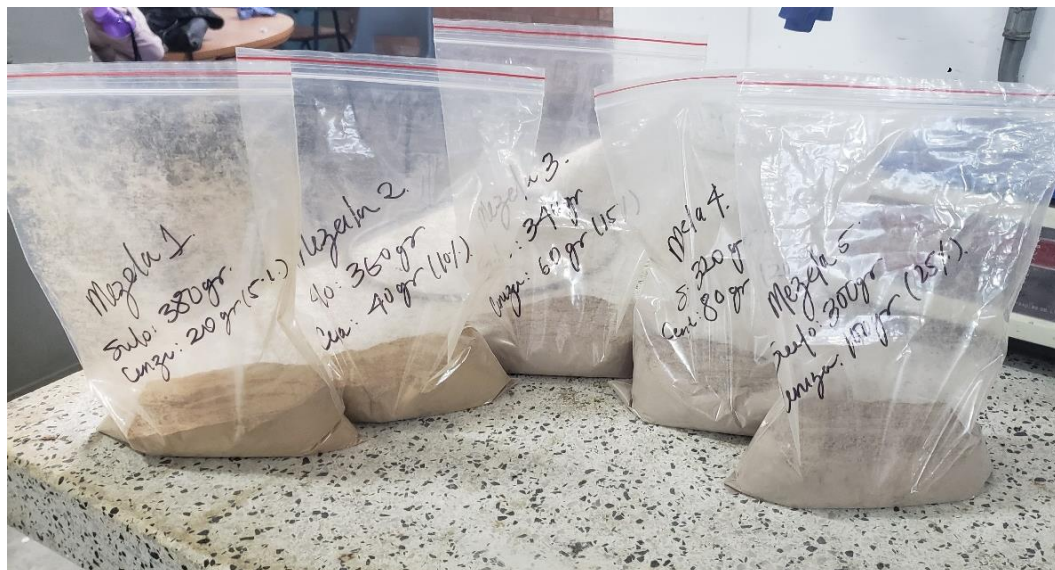 Mezcla 1
Suelo: 380gr.
Ceniza: 20gr (5%)
Mezcla 2.
360gr
40gr (10%)
Mezcla 3.
: 340gr
Ceniza: 60gr (15%)
Mezcla 4.
S: 320gr
80gr
Mezcla 5.
Suelo: 300gr
Ceniza: 100gr (25%).